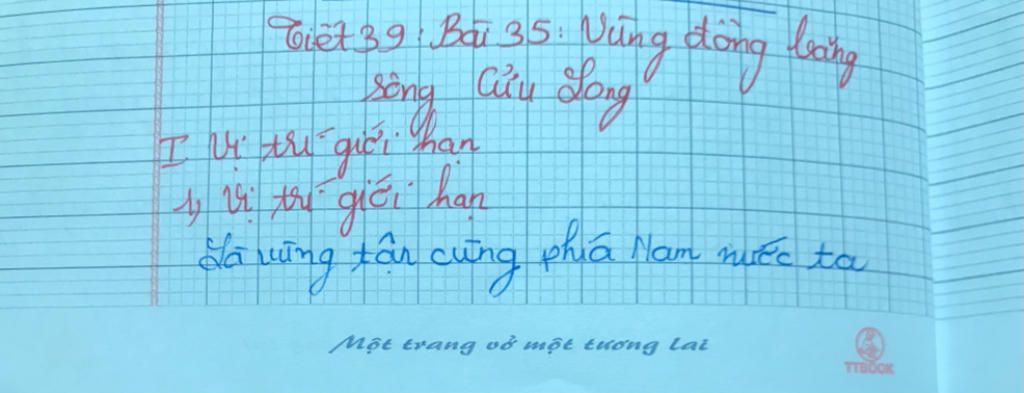 Tiết 39: Bài 35: Vùng đồng bằng
sông Cửu Long
I Vị trí giới hạn
1, Vị trí giới hạn
Là vùng tận cùng phía Nam nước ta
Một trang vở một tương lai
TTBOOK